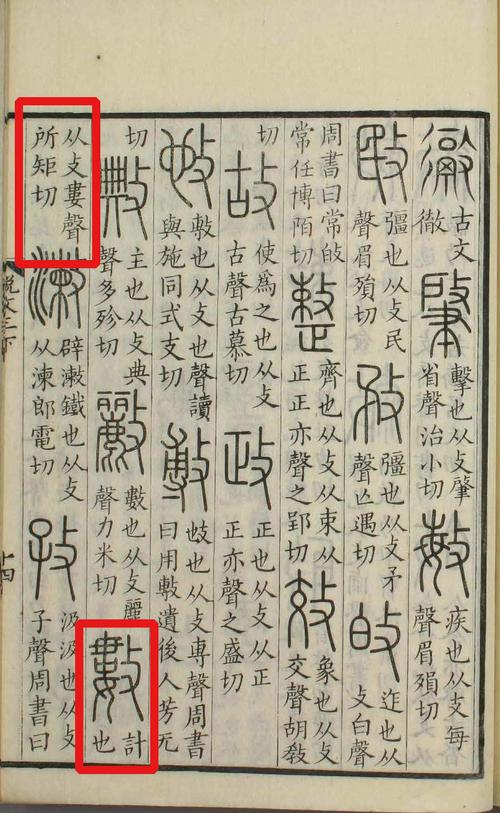 𢕹古文徹肈擊也从攴肇省聲治小切敏疾也从攴每聲眉殞切
敃彊也从攴民聲眉殞切敄彊也从攴矛聲亾遇切敀迮也从攴白聲
周書曰常敀常任博陌切整齊也从攴从束从正正亦聲之郢切效象也从攴交聲胡敎
切故使爲之也从攴古聲古慕切政正也从攴从正正亦聲之盛切
𢻱敷也从攴也聲讀與施同式支切敷也从攴尃聲周書曰用敷遺後人芳无
切敟主也从攴典聲多殄切𢿫數也从攴麗聲力米切數計也
从攴婁聲所矩切辟漱鐵也从攴从湅郎電切孜汲汲也从攴子聲周書曰
說文三下
十四